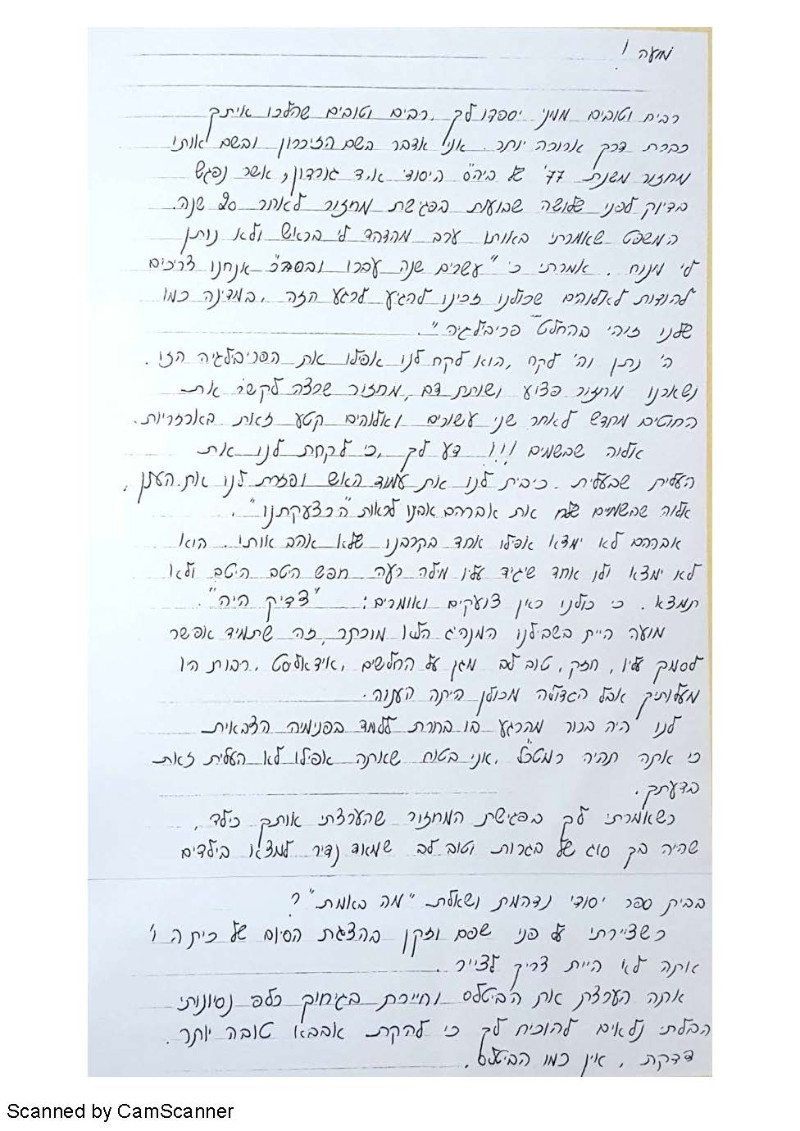 מועה !
רבים וטובים ממני יספדו לך, רבים וטובים שהלכו איתך
כברת דרך ארוכה יותר. אני אדבר בשם הזיכרון ובשם אותו
מחזור משנת 77' של ביה"ס היסודי א.ד גורדון, אשר נפגש
בדיוק לפני שלושה שבועות בפגישת מחזור לאחר 20 שנה.
המשפט שאמרתי באותו ערב מהדהד לי בראש ולא נותן
לי מנוח. אמרתי כי "עשרים שנה עברו ובסה"כ אנחנו צריכים
להודות לאלוהים שכולנו זכינו להגיע לרגע הזה, במדינה כמו
שלנו זוהי בהחלט פריבילגיה".
ה' נתן וה' לקח, הוא לקח לנו אפילו את הפריבילגיה הזו.
נשארנו מחזור פצוע ושותת דם, מחזור שרצה לקשר את
החוטים מחדש לאחר שני עשורים ואלוהים קטע זאת באכזריות.
אלוה שבשמים !!! דע לך, כי לקחת לנו את
העלית שבעלית. כיבית לנו את עמוד האש ופזרת לנו את הענן,
אלוה שבשמים שלח את אברהם אבנו לראות "הכצעקתנו".
אברהם לא ימצא אפילו אחד בקרבנו שלא אהב אותו. הוא
לא ימצא ולו אחד שיגיד עליו מילה רעה חפש היטב היטב ולא
תמצא. כי כולנו כאן צועקים ואומרים: "צדיק היה".
מועה היית בשבילנו המנהיג הלא מוכתר, זה שתמיד אפשר
לסמוך עליו, חזק, טוב לב מגן על החלשים, אידאליסט, רבות היו
מעלותיך אבל הגדולה מכולן היתה הענוה.
לנו היה ברור מהרגע בו בחרת ללמד בפנימיה הצבאית
כי אתה תהיה רמטכ"ל, אני בטוח שאתה אפילו לא העלית זאת
בדעתך.
כשאמרתי לך בפגישת המחזור שהערצתי אותך כילד,
שהיה בך סוג של בגרות וטוב לב שמאוד נדיר למצאו בילדים
בבית ספר יסודי נדהמת ושאלת "מה באמת"?
כשציירתי על פני שפם וזקן בהצגת הסיום של כיתה ו'
אתה לא היית צריך לצייר.
אתה הערצת את הביטלס וחייכת בגיחוך כלפי נסיונותי
הבלתי נלאים להוכיח לך כי להקת אבבא טובה יותר.
צדקת, אין כמו הביטלס.
Scanned by CamScanner